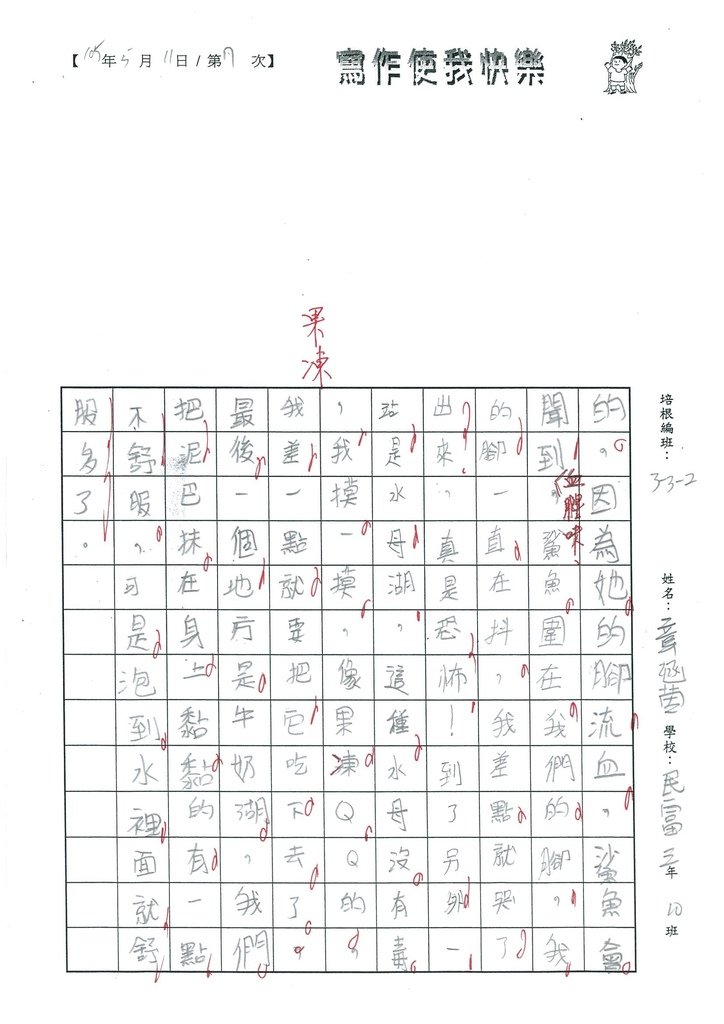 【105年5月11日/第7次】
寫作使我快樂
培根編班：33-2
姓名：章涵茵 學校：民富三年10班
果凍
的。因為她的腳流血，鯊魚會
聞到血腥味。鯊魚圍在我們的腳，我
的腳一直在抖，我差點就哭了
出來，真是恐怖！到了另外一
站是水母湖，這種水母沒有毒
，我摸一摸，像果凍QQ的，
我差一點就要把它吃下去了。
最後一個地方是牛奶湖，我們
把泥巴抹在身上黏黏的有一點
不舒服。可是泡到水裡面就舒
服多了。